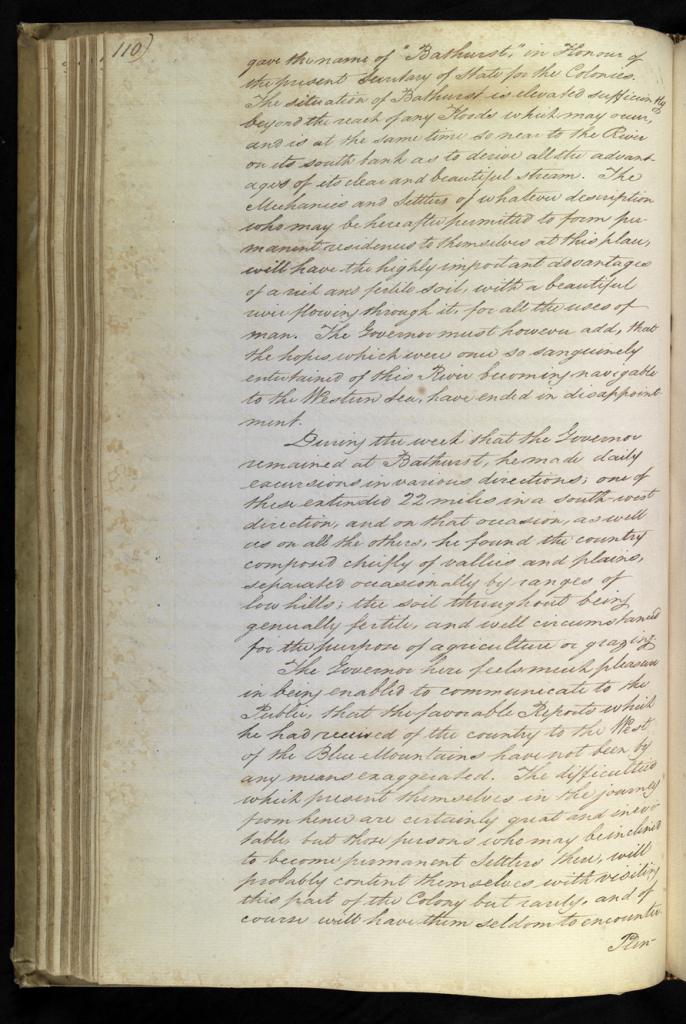 110)
gave the name of "Bathurst," in Honour of
the present Secretary of State for the Colonies.
The situation of Bathurst is elevated sufficiently
beyond the reach of any Floods which may occur,
and is at the same time so near to the River
on its south bank as to derive all the advant-
ages of its clear and beautiful stream. The
Mechanics and Settlers of whatever description
who may be hereafter permitted to form per-
manent residences to themselves at this place,
will have the highly important advantages
of a rich and fertile soil, with a beautiful
river flowing through it, for all the uses of
man. The Governor must however add, that
the hopes which were once so sanguinely
entertained of this River becoming navigable
to the Western Sea, have ended in disappoint-
ment.
During the week that the Governor
remained at Bathurst, he made daily
excursions in various directions; one of
these extended 22 miles in a south-west
direction, and on that occasion, as well
as on all the others, he found the country
composed chiefly of vallies and plains,
separated occasionally by ranges of
low hills; the soil throughout being
generally fertile, and well circumstanced
for the purpose of agriculture or grazing.
The Governor here feels much pleasure
in being enabled to communicate to the
Public, that the favorable Reports which
he had received of the country to the West
of the Blue Mountains have not been by
any means exaggerated. The difficulties
which present themselves in the journey
from hence are certainly great and inevi-
table, but those persons who may be inclined
to become permanent Settlers there, will
probably content themselves with visiting
this part of the Colony but rarely, and of
course will have them seldom to encounter.
Plen-